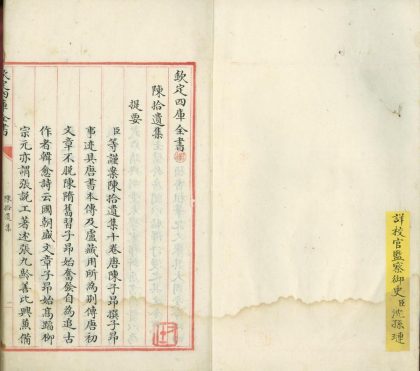 詳校官監察御史臣沈孫璉
欽定四庫全書
陳拾遺集
提要
臣等謹案陳拾遺集十卷唐陳子昂撰子昂
事迹具唐書本傳及盧藏用所為別傳唐初
文章不脫陳隋舊習子昂始奮發自為追古
作者韓愈詩云國朝盛文章子昂始高蹈柳
宗元亦謂張說工著述張九齡善比興兼備
欽定四庫全書
陳拾遺集